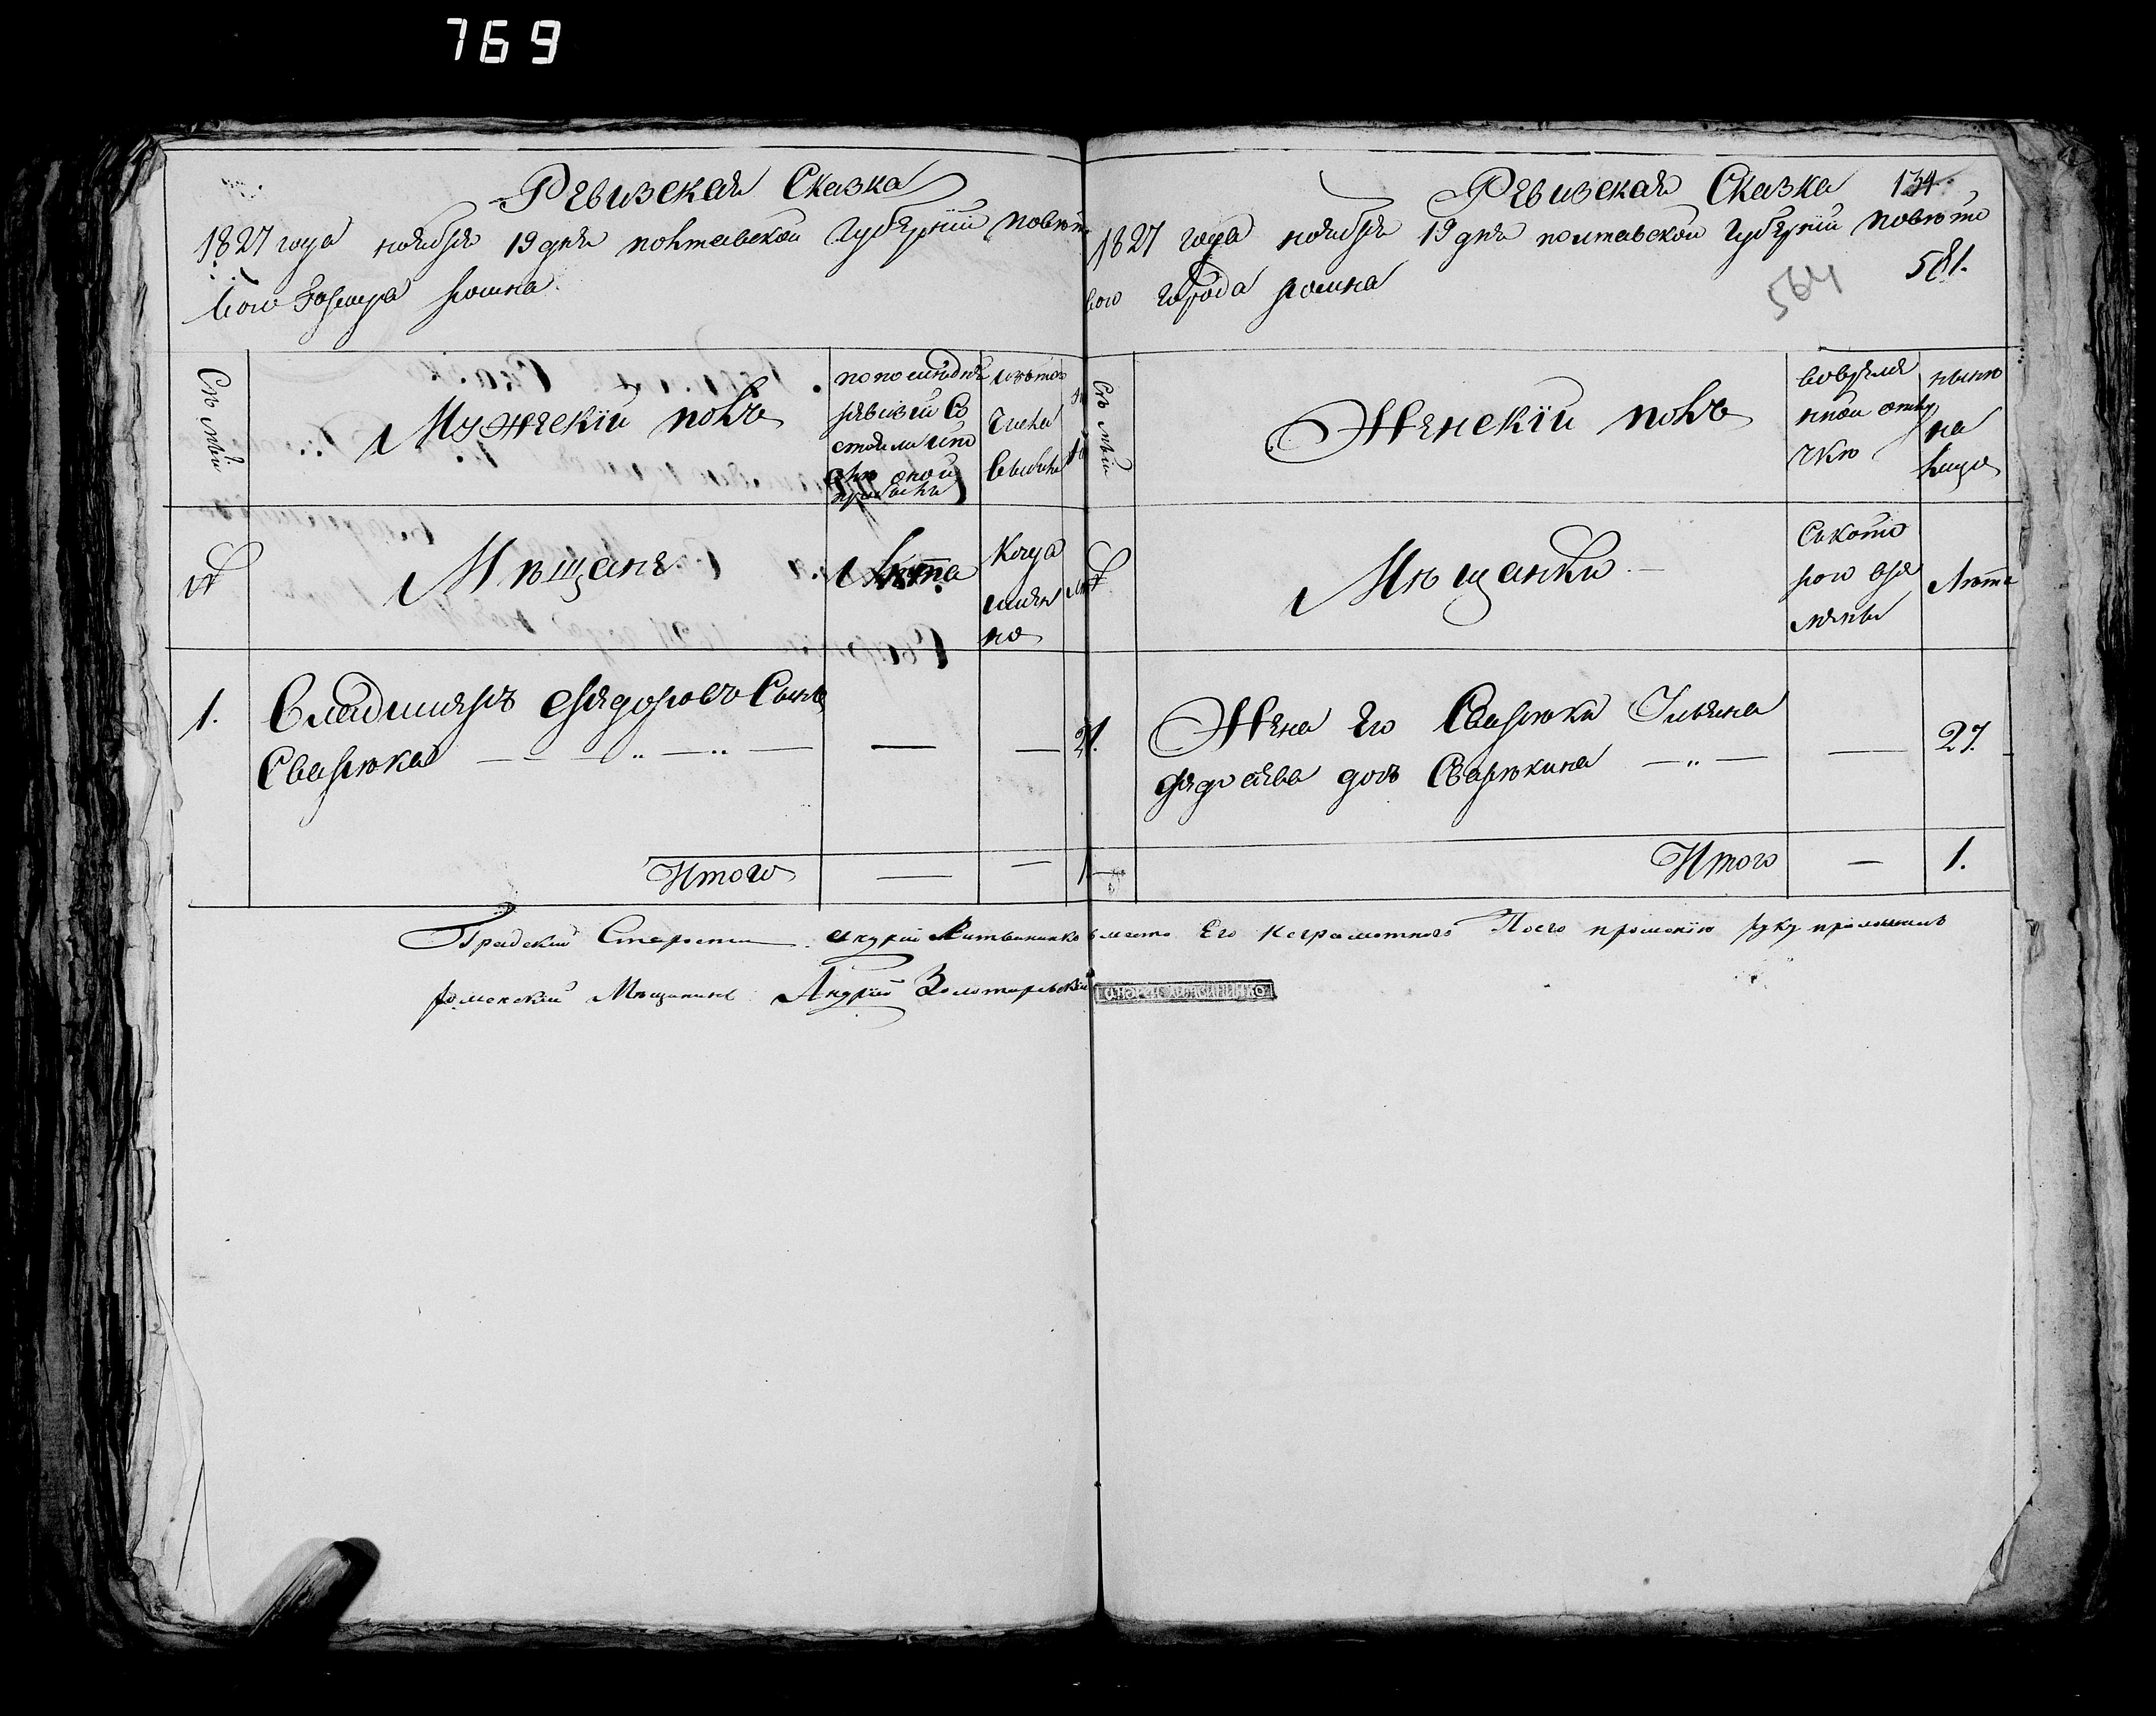 769
Ревизская Сказка
1827 года ноября 19 дня полтавской Губерніи повѣто
вого Города ромна
Мужескій полъ
по последней
ревизій Со
стояло и по
оной
прибыло
изъ того
числа
выбыло
№
Мѣщане
Лѣта
Когда
имян
но
1. Владимеръ Федоровъ Сынъ
Сварюка — — 21.
Итого — — 1
Ревизская Сказка 134
1827 года ноября 19 дня полтавской Губерніи повѣто
вого города ромна
564
581.
Женскій полъ
во времян
ной отлу
чкѣ
нынѣ
на
лицо
№
Мѣщанки
Съ кото
рого вре
мяны
Лѣта
Жена Его Сварюка Ульяна
дочь Сварюкина — 27.
Итого — 1.
Градскій Староста андрей Литвиненко вместо Его неграмотного По его прошенію руку приложилъ
роменскій Мещанинъ Андрей Золотаревскій
АНДРЕЙ ЛИТВИНЕНКО